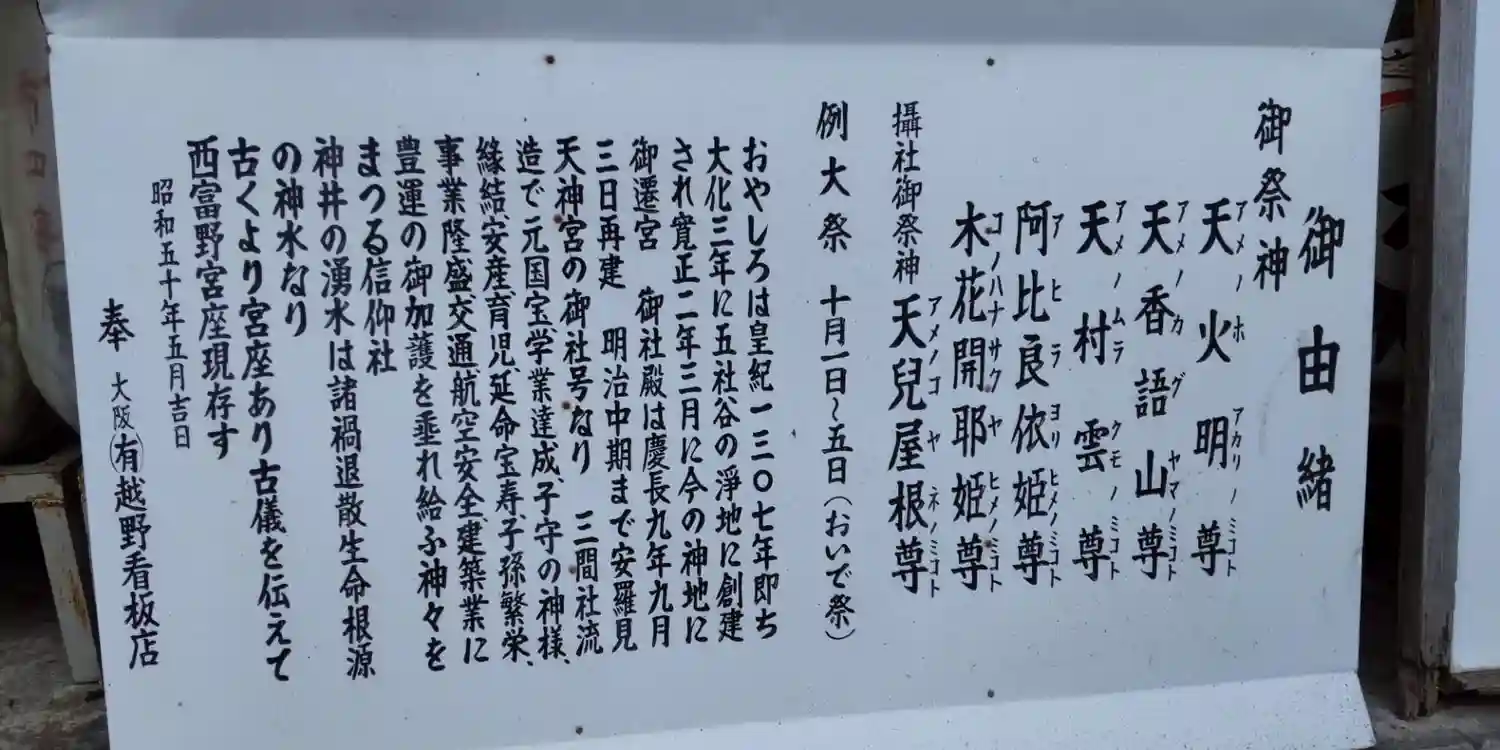 御由緒
御祭神
天火明尊
アメノホアカリノミコト
天香語山尊
アメノカグヤマノミコト
天村雲尊
アメノムラクモノミコト
阿比良依姫尊
アヒラヨリヒメノミコト
木花開耶姫尊
コノハナサクヤヒメノミコト
攝社御祭神 天兒屋根尊
アメノコヤネノミコト
例大祭 十月一日〜五日(おいで祭)
おやしろは皇紀一三〇七年即ち
大化三年に五社谷の淨地に創建
され寛正二年三月に今の神地に
御遷宮 御社殿は慶長九年九月
三日再建 明治中期まで安羅見
天神宮の御社号なり 三間社流
造で元国宝学業達成、子守の神様、
緣結、安産、育児、延命宝寿、子孫繁栄、
事業隆盛交通、航空安全建築業に
豊運の御加護を垂れ給ふ神々を
まつる信仰社
神井の湧水は諸禍退散生命根源
の神水なり
古くより宮座あり古儀を伝えて
西富野宮座現存す
昭和五十年五月吉日
奉 大阪(有)越野看板店